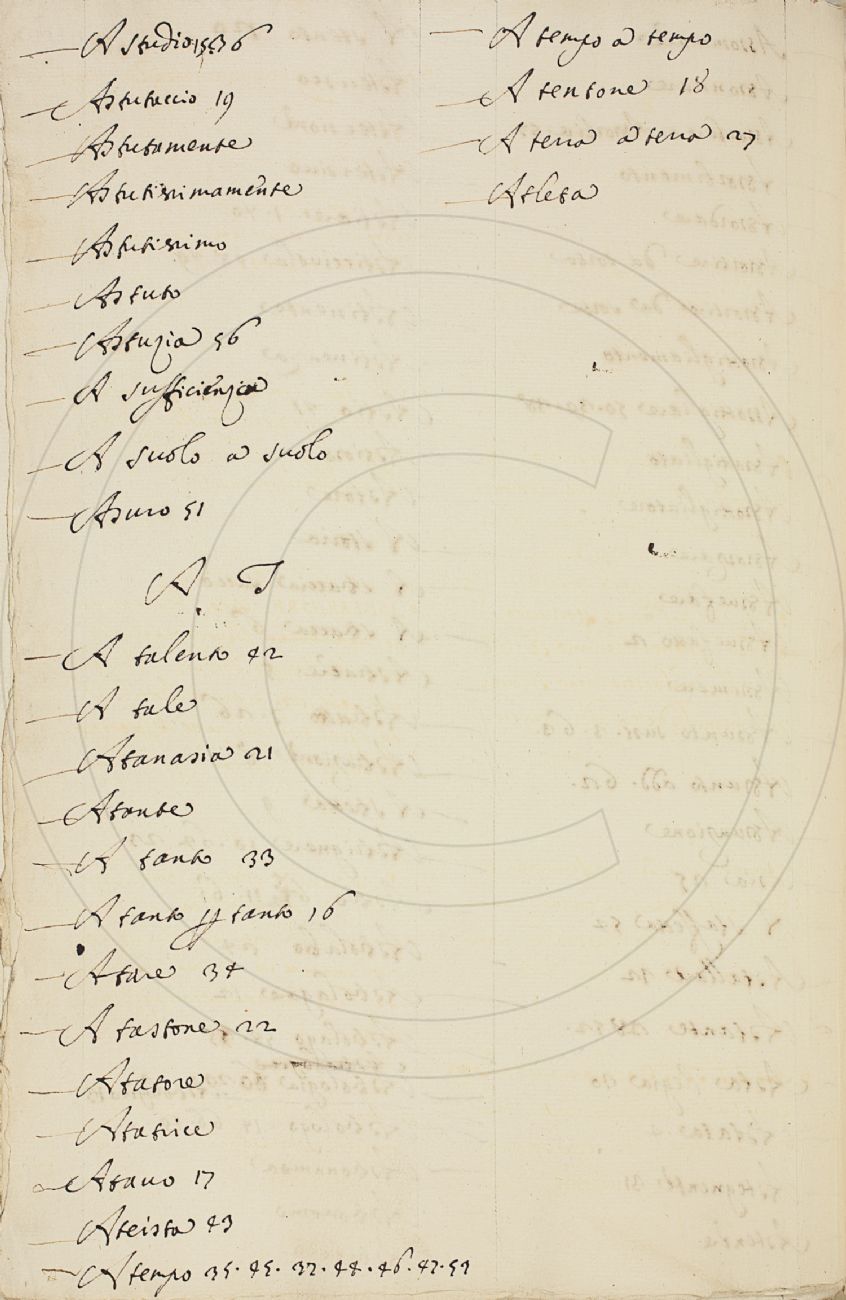 A studio 1536
Astutaccio 19
Astutamente
Astutissimamente
Astutissimo
Astuto
Astuzia 56
A sufficienza
A suolo a suolo
Asuro 51
A T
A talento 42
A tale
Atanasia 21
Atante
A tanto 33
A tanto p tanto 16
Atare 34
A tastone 22
Atatore
Atatrice
Atauo 17
Ateista 43
A tempo 35. 45. 37. 44. 46. 47. 57
A tempo a tempo
A tentone 18
A terra a terra 27
Atleta